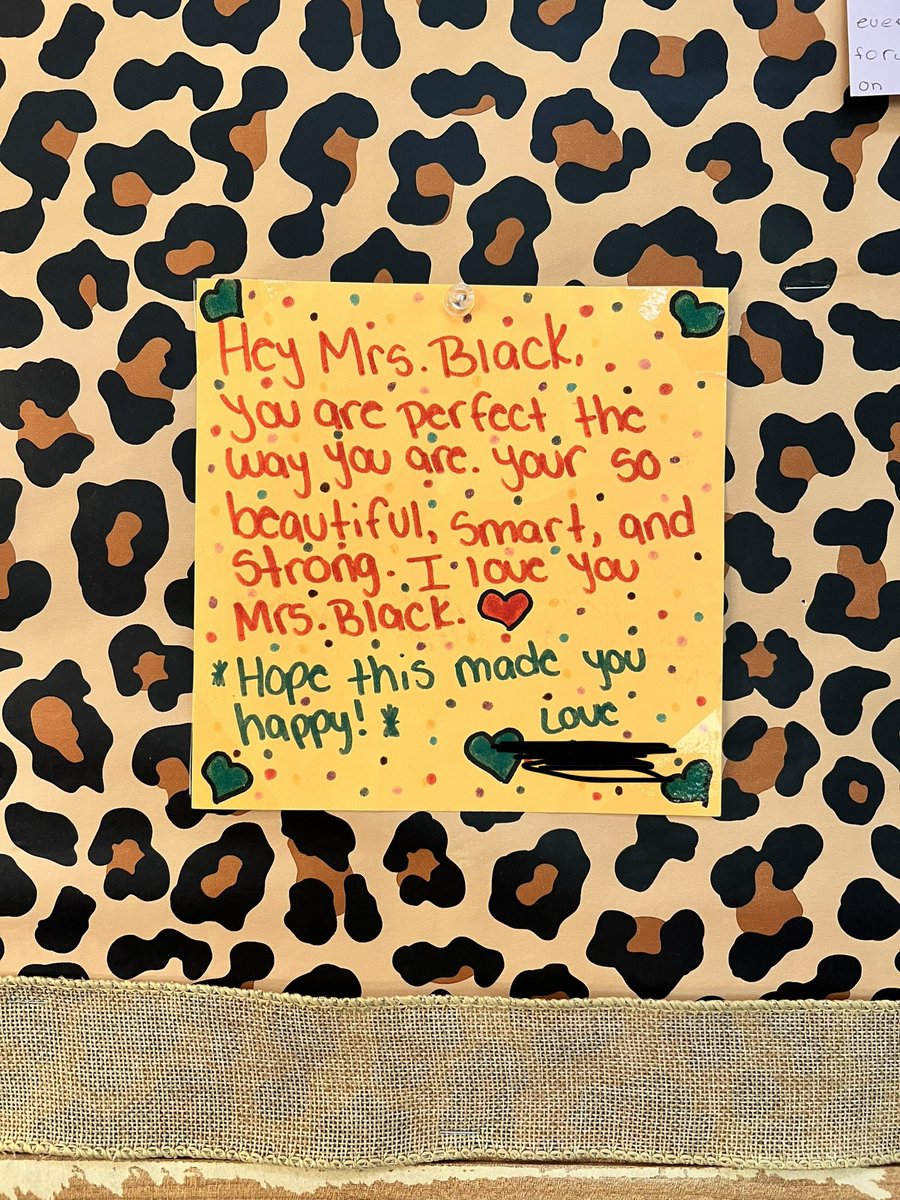 eve
foru
on
Hey Mrs. Black,
You are perfect the
way you are. your so
beautiful, smart, and
strong. I love you
Mrs. Black.
*Hope this made you
happy!*
Love